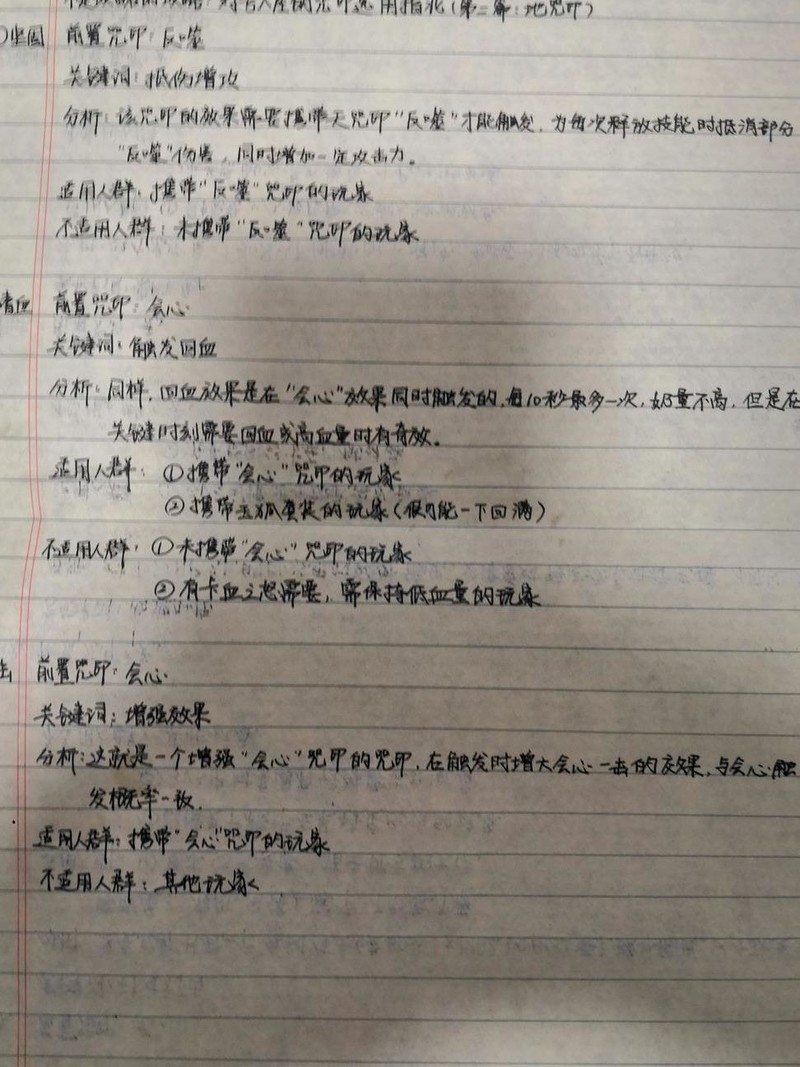 对台人度制咒印适用指北(第二篇:地咒印)
坚固 前置咒印:反噬
关键词:抵伤增攻
分析:该咒印的效果需要携带天咒印"反噬"才能触发,为每次释放技能时抵消部分
"反噬"伤害,同时增加一定攻击力。
适用人群:携带"反噬"咒印的玩家
不适用人群:未携带"反噬"咒印的玩家
前置咒印:会心
关键词:触发回血
分析:同样,回血效果是在"会心"效果同时触发的,每10秒最多一次,奶量不高,但是在
关键时刻需要回血或高血量时有奇效。
适用人群:①携带"会心"咒印的玩家
②携带玉狐套装的玩家(很可能一下回满)
不适用人群:①未携带"会心"咒印的玩家
②有卡血之怒需要,需保持低血量的玩家
击 前置咒印:会心
关键词:增强效果
分析:这就是一个增强"会心"咒印的咒印,在触发时增大会心一击的效果,与会心触
发概率一致.
适用人群:携带"会心"咒印的玩家
不适用人群:其他玩家